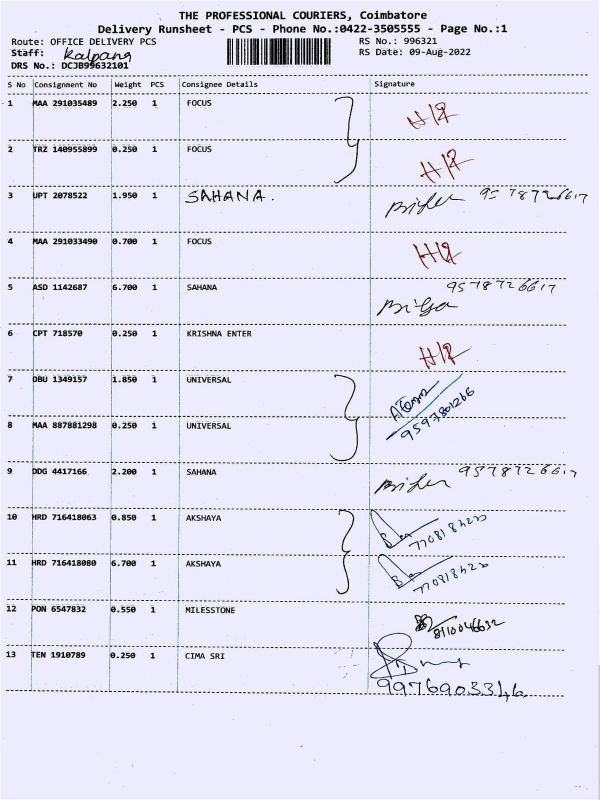 THE PROFESSIONAL COURIERS, Coimbatore
Delivery Runsheet - PCS - Phone No.:0422-3505555 - Page No.:1
Route: OFFICE DELIVERY PCS RS No.: 996321
Staff: Kalpana RS Date: 09-Aug-2022
DRS No.: DCJB99632101
S No Consignment No Weight PCS Consignee Details Signature
1 MAA 291035489 2.250 1 FOCUS
2 TRZ 140955899 0.250 1 FOCUS
3 UPT 2078522 1.950 1 SAHANA. 9578726617
4 MAA 291033490 0.700 1 FOCUS
5 ASD 1142687 6.700 1 SAHANA 9578726617
6 CPT 718570 0.250 1 KRISHNA ENTER
7 OBU 1349157 1.850 1 UNIVERSAL
8 MAA 887881298 0.250 1 UNIVERSAL 9597801266
9 DDG 4417166 2.200 1 SAHANA 9578726617
10 HRD 716418063 0.850 1 AKSHAYA
11 HRD 716418080 6.700 1 AKSHAYA
12 PON 6547832 0.550 1 MILESSTONE 8110046632
13 TEN 1910789 0.250 1 CIMA SRI
9976903346